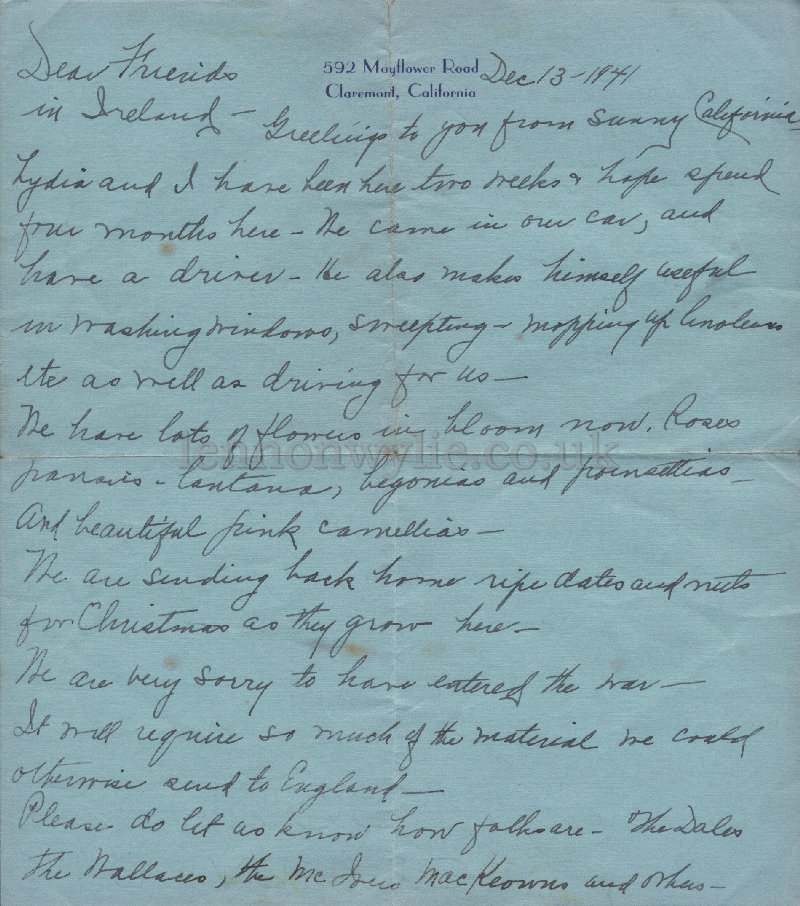 592 Mayflower Road
Claremont, California
Dec 13 - 1941
Dear Friends
in Ireland -
Greetings to you from sunny California
Lydia and I have been here two weeks & hope spend
four months here - We came in our car, and
have a driver - He also makes himself useful
in washing windows, sweepting - mopping up linoleum
etc as well as driving for us -
We have lots of flowers in bloom now. Roses
pansies - lantana, begonias and poinsettias -
And beautiful pink camellias -
We are sending back home ripe dates and nuts
for Christmas as they grow here -
We are very sorry to have entered the war -
It will require so much of the material we could
otherwise send to England -
Please do let us know how folks are - The Dales
the Wallaces, the Mc MacKeowns and others -
lennonwylie.co.uk